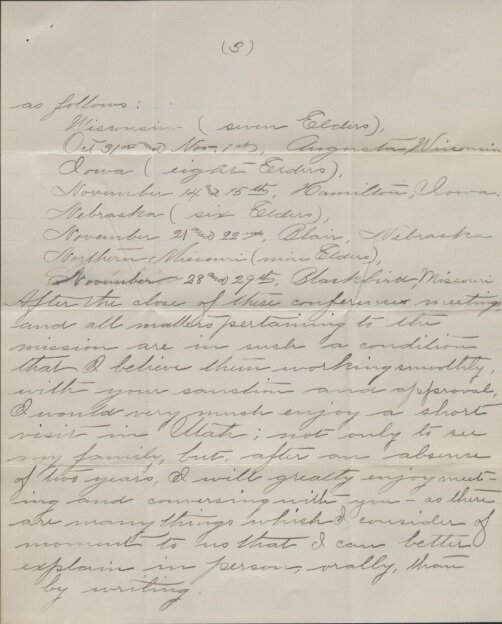 (3)
as follows:
Wisconsin (seven Elders),
Oct 31st and Nov. 1st, Augusta, Wisconsin
Iowa (eight Elders),
November 14 & 15th, Hamilton, Iowa
Nebraska (six Elders),
November 21 and 22nd, Blair, Nebraska
Northern Missouri (nine Elders),
November 28 and 29th, Blackbird, Missouri
After the close of these conference meetings
and all matters pertaining to the
mission are in such a condition
that I believe them working smoothly,
with your sanction and approval,
I would very much enjoy a short
visit in Utah; not only to see
my family, but, after an absence
of two years, I will greatly enjoy meet-
ing and conversing with you - as there
are many things which I consider of
moment to us that I can better
explain in person, orally, than
by writing.